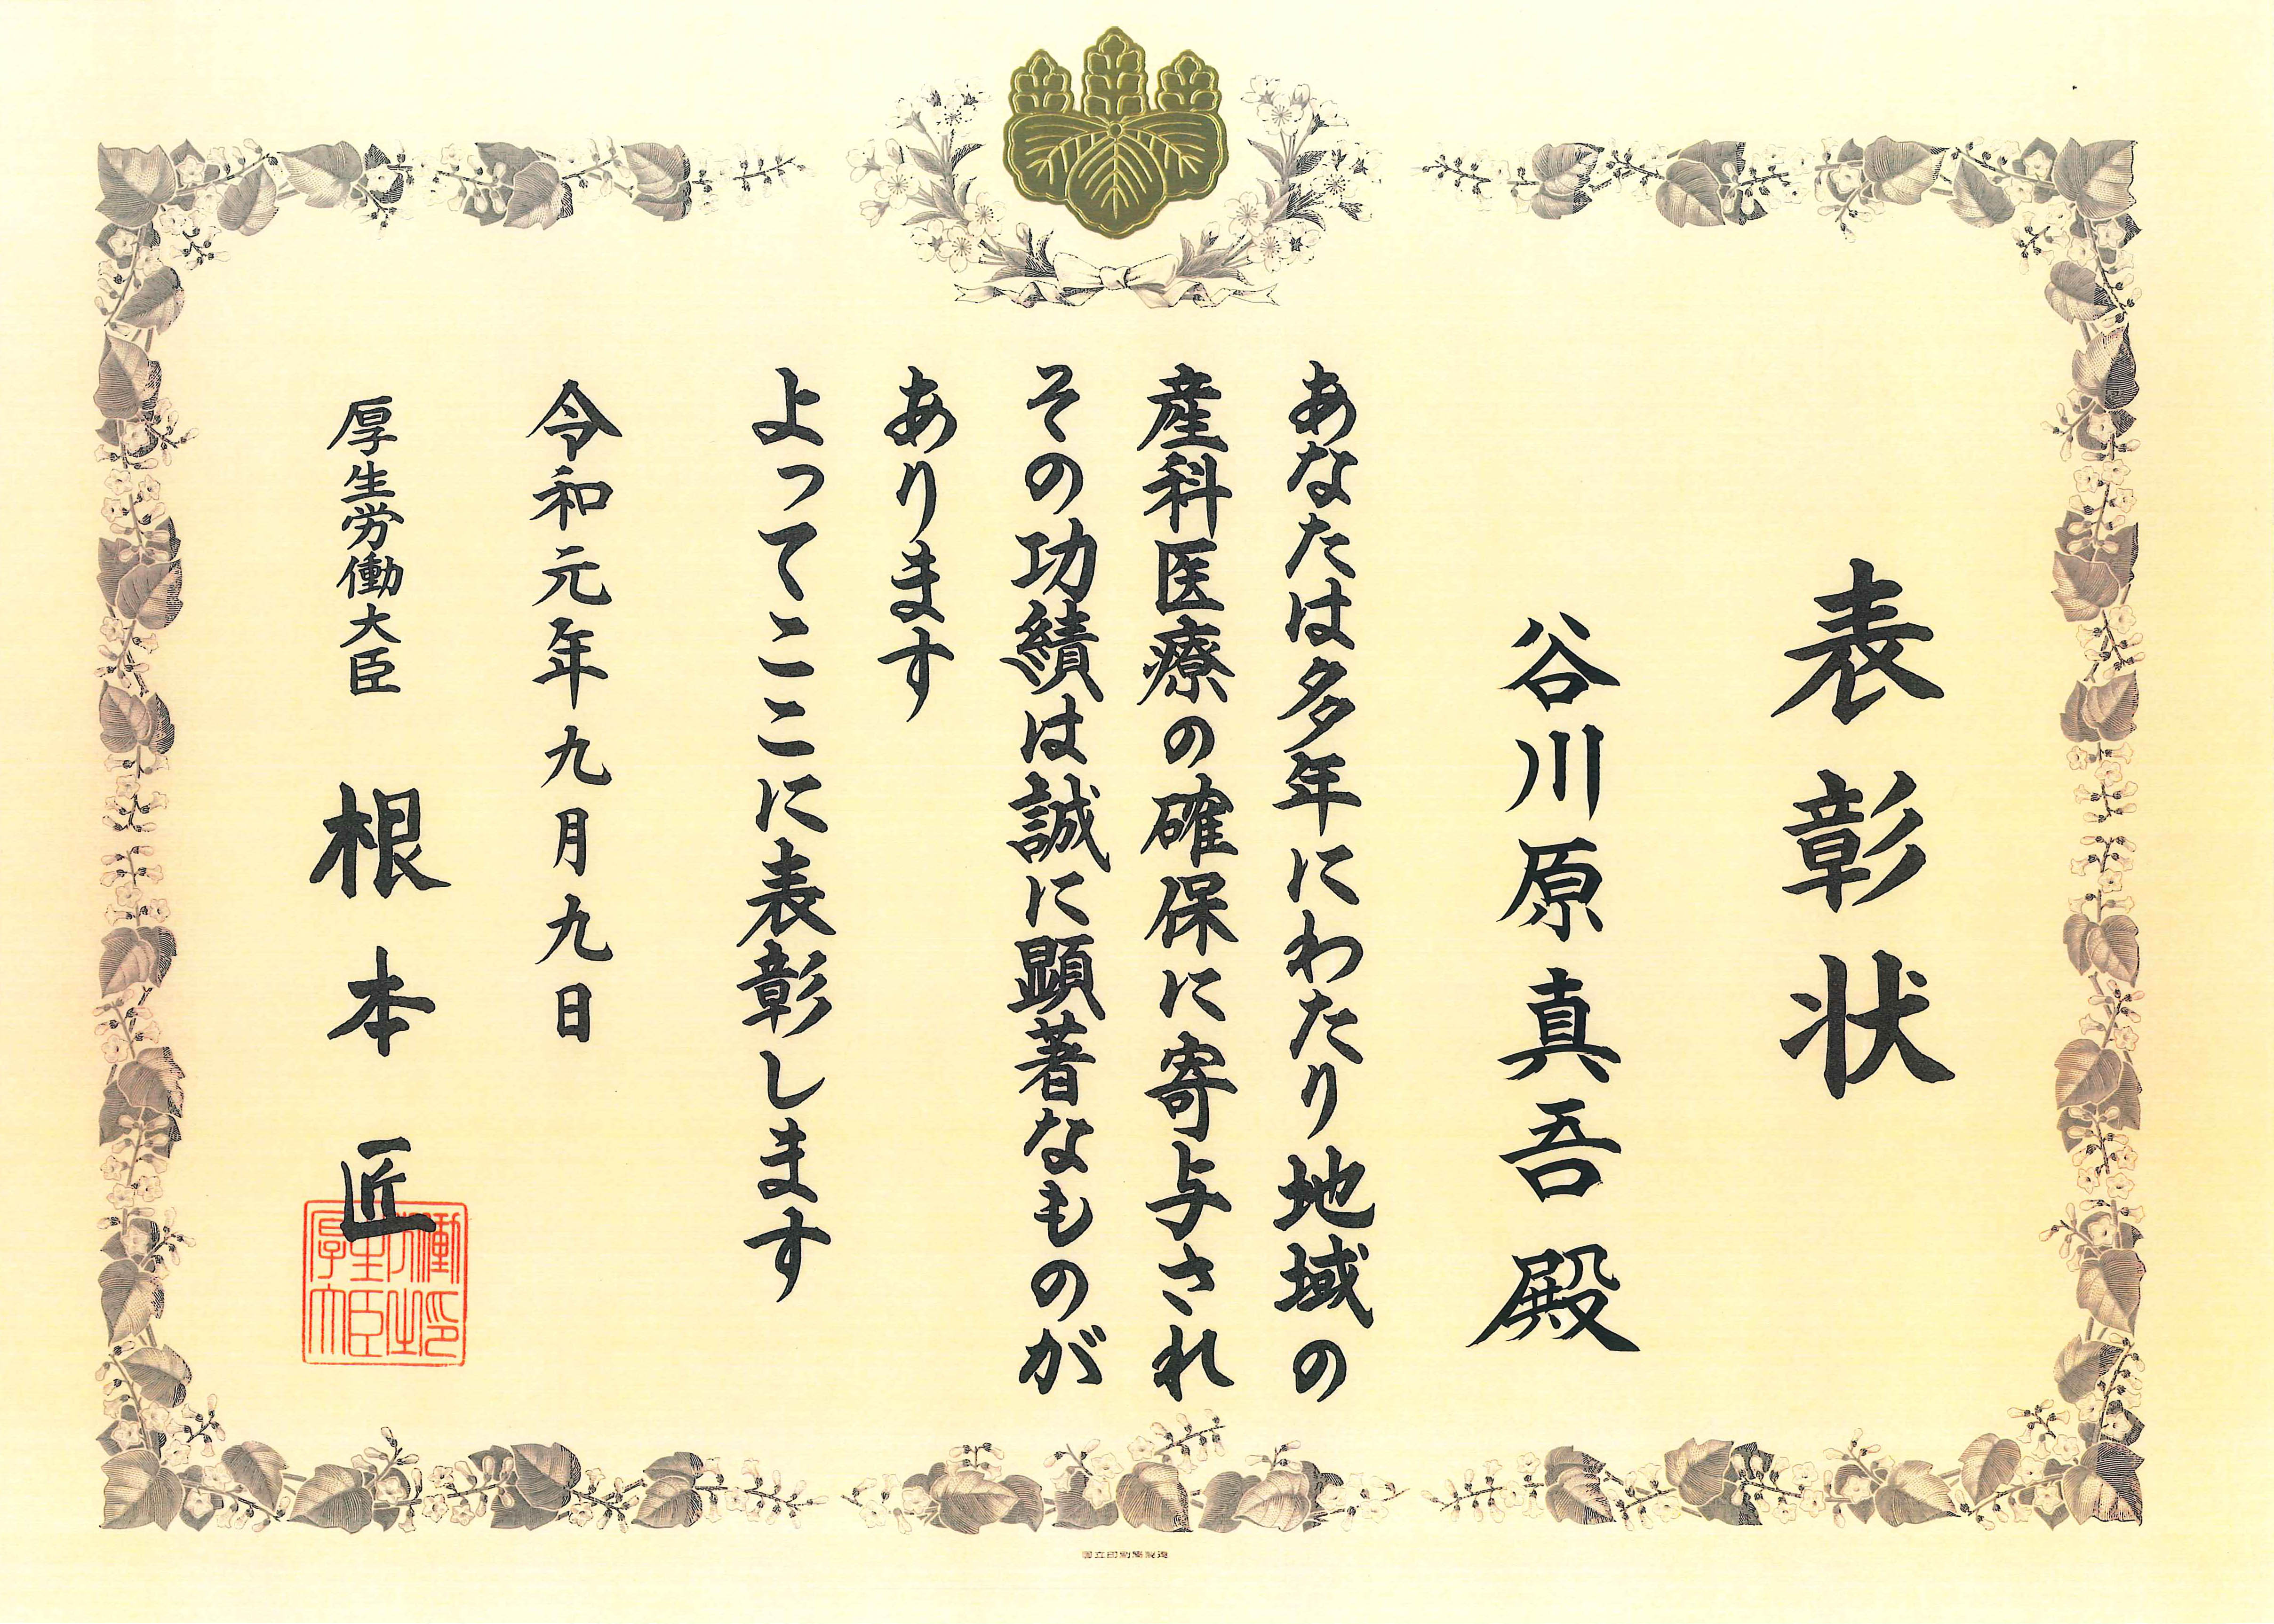 表彰状
谷川原真吾殿
あなたは多年にわたり地域の
産科医療の確保に寄与され
その功績は誠に顕著なものが
あります
よってここに表彰します
令和元年九月九日
厚生労働大臣 根本匠
国立印刷局製造